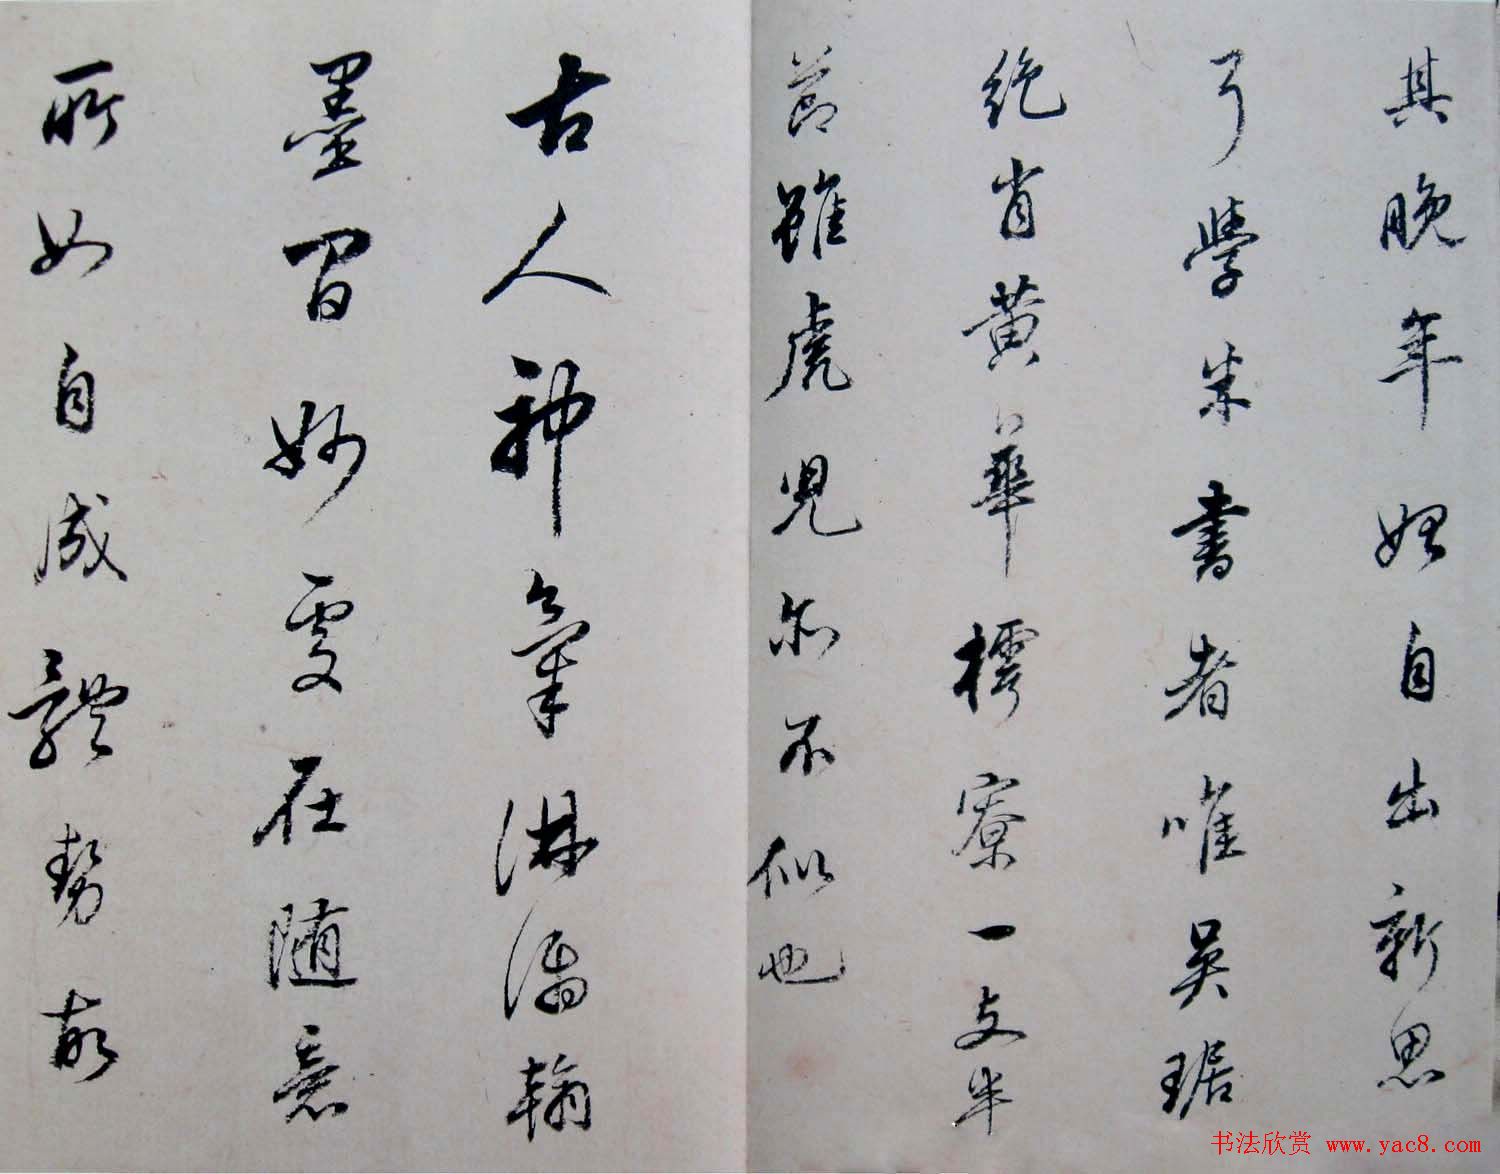 其晚年始自出新思
了學米書者唯吳琚
絶肖黃華樗寮一支半
節雖虎兒亦不似也
古人神氣淋漓翰
墨間妙處在隨意
所如自成體勢故
书法欣赏 www.yac8.com